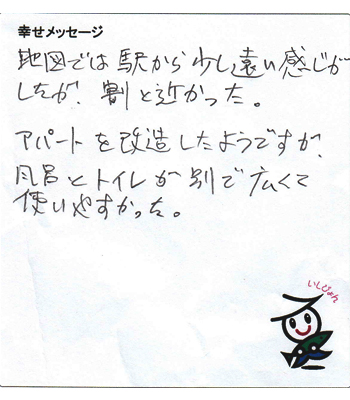 幸せメッセージ
地図では駅から少し遠い感じが
したが、割と近かった。
アパートを改造したようですが、
風呂とトイレが別で広くて
使いやすかった。
いしぴょん